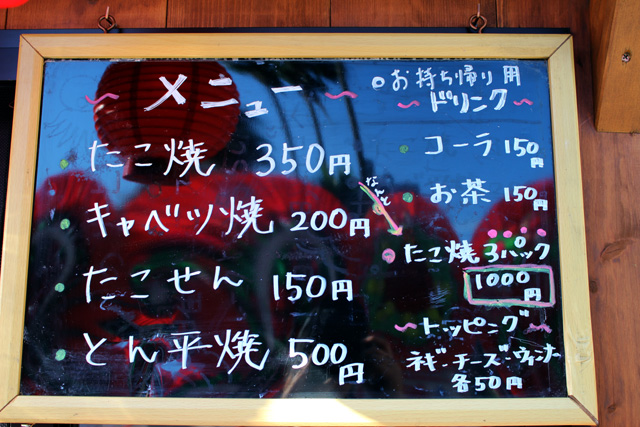 〜メニュー〜
・たこ焼 350円
・キャベツ焼 200円
・たこせん 150円
・とん平焼 500円
○お持ち帰り用
〜ドリンク〜
・コーラ 150円
・お茶 150円
なんと
・たこ焼3パック
1000円
〜トッピング〜
ネギ・チーズ・ウィンナー
各50円